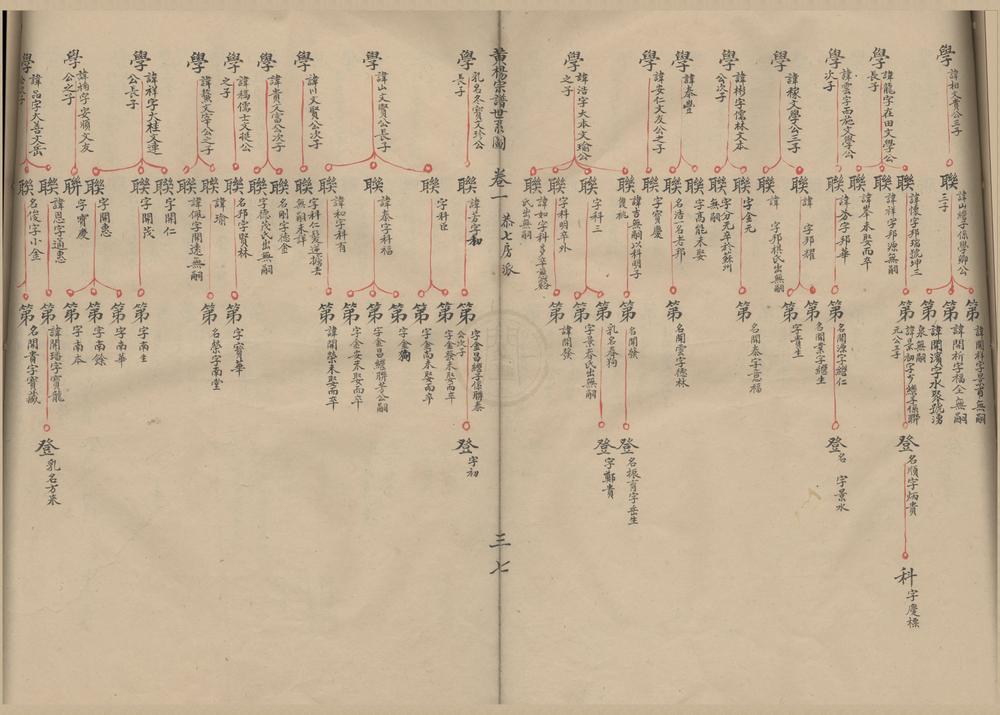 學
諱和文貴公三子
學
諱龍字在田文學公
長子
學
諱雲字雨施文學公
次子
學
諱
文學公三子
學
諱彬字儒林文本
公次子
學
諱泰豐
學
諱安仁文友公之子
學
諱浩字大本文瑜公
之子
聯
諱山繼子係學卿公
三子
聯
諱懷字邦瑞號坤三
聯
諱祥字邦源無嗣
聯
諱峯未娶而卒
聯
諱
字邦華
聯
諱
字邦耀
聯
諱
字邦棋氏出無嗣
聯
字金元
聯
字分元卒於蘇州
無嗣
聯
字高能未娶
聯
名浩一名老邦
聯
字寶慶
聯
諱吉無嗣以科明子
聯
字科三
聯
字科明卒外
聯
諱如字科
聯
氏出無嗣
第
名開祥字景
無嗣
第
諱開祈字福全無嗣
第
諱開濱字水聚號湧
泉無嗣
第
諱景初字
繼子係聯
元公子
第
名開源字繼仁
第
名開業字繼生
第
字貴生
第
名開泰字意福
第
名開雲字德林
第
名開發
第
乳名春狗
第
字景春氏出無嗣
第
諱開發
登
名順字炳貴
登
名
字景水
登
名振育字岳生
登
字鄭貴
科
字慶標
黃楊宗譜世系圖
卷一
恭七房派
三七
學
乳名冬寶文珍公
長子
學
諱山文賢公長子
學
諱川文賢公次子
學
諱貴文富公次子
學
諱稿儒士文徒公
之子
學
諱
文宇公之子
學
諱祥字大桂文達
公長子
學
諱
字安順文友
公之子
學
諱品字大善文岳
公之子
聯
諱芳字和
聯
字科臣
聯
諱泰字科福
聯
諱和字科有
聯
字科仁髮逆擄去
無嗣未詳
聯
名剛字德金
聯
字德茂氏出無嗣
聯
名邦字賢林
聯
諱瑜
聯
諱佩字開遠無嗣
聯
字開仁
聯
字開茂
聯
字開惠
聯
字寶慶
聯
諱恩字通惠
聯
名俊字小金
第
字金昌繼子係聯泰
公次子
第
字金發未娶而卒
第
字金高未娶而卒
第
字金狗
第
字金昌繼聯芳公嗣
第
字金安未娶而卒
第
諱開榮未娶而卒
第
字寶華
第
名榮字南堂
第
字南生
第
字南華
第
字南餘
第
字南本
第
諱開璠字寶龍
第
名開貴字寶藏
登
字初
登
乳名方來